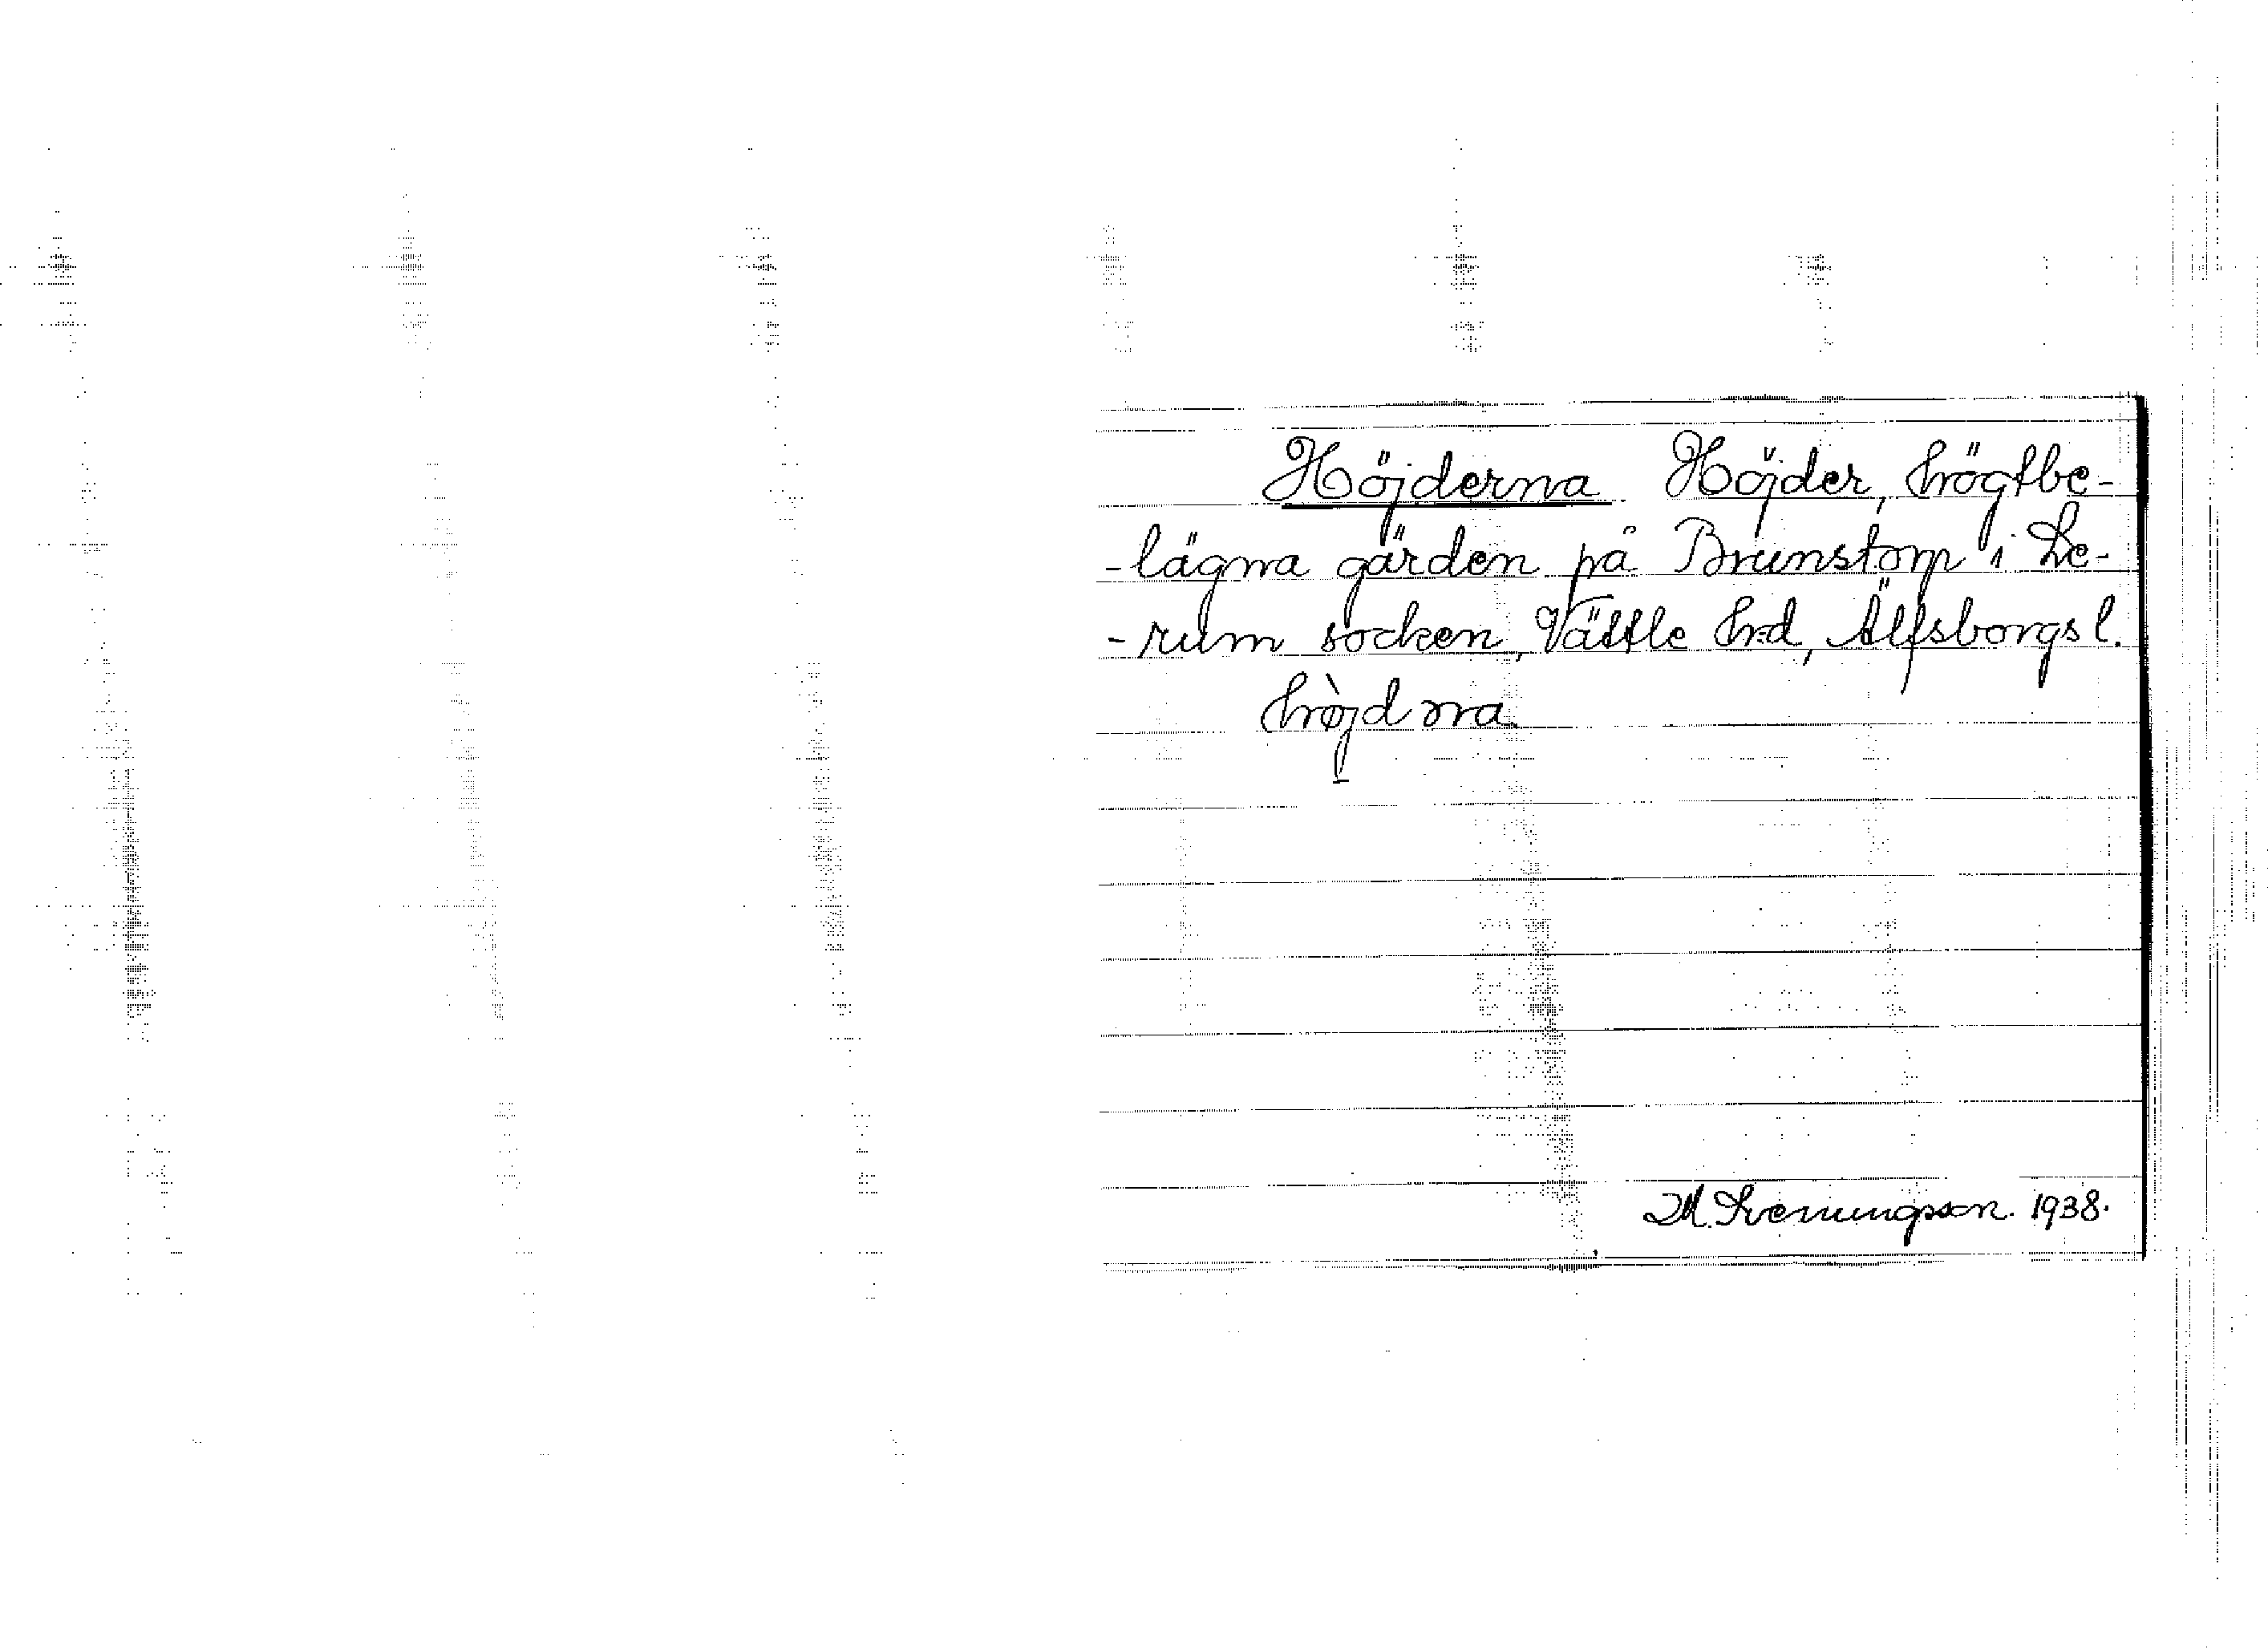 Höjderna Höjder, högtbe-
-lägna gärden på Brunstorp i Le-
-rum socken, Vättle h:d, Älfsborgs l.
hòjdna.
M. Svenungsson. 1938.